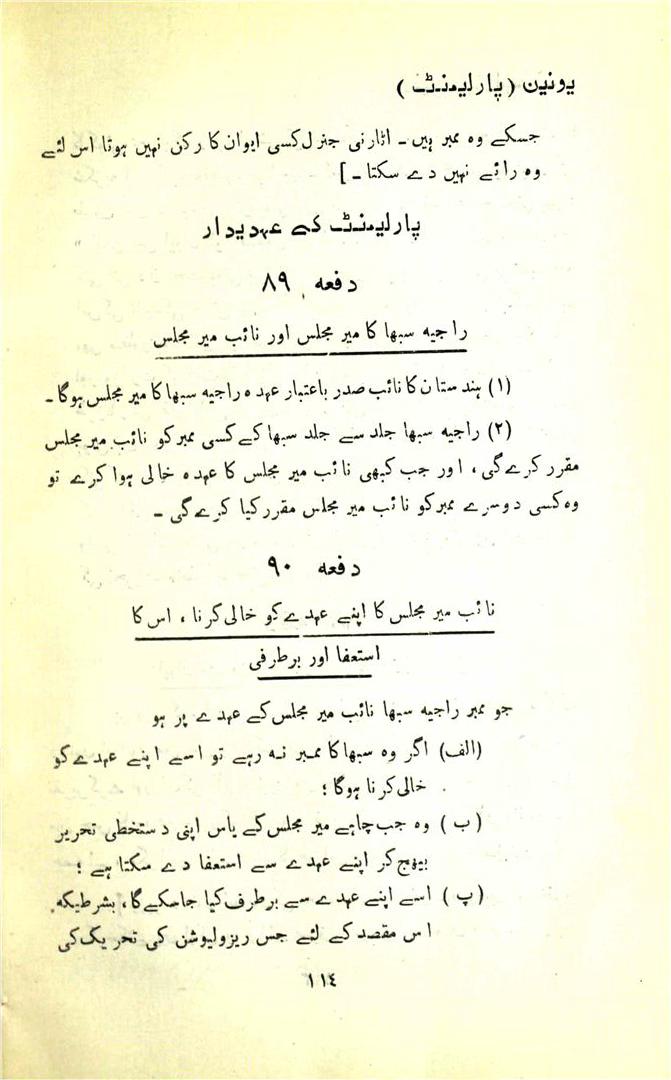 یونین (پارلیمنٹ)
جسکے وہ ممبر ہیں ۔ اٹارنی جنرل کسی ایوان کا رکن نہیں ہوتا اس لئے
وہ رائے نہیں دے سکتا ۔]
پارلیمنٹ کے عہدیدار
دفعہ ۸۹
راجیہ سبھا کا میر مجلس اور نائب میر مجلس
(۱) ہندستان کا نائب صدر باعتبار عہدہ راجیہ سبھا کا میر مجلس ہوگا ۔
(۲) راجیہ سبھا جلد سے جلد سبھا کے کسی ممبر کو نائب میر مجلس
مقرر کرے گی ، اور جب کبھی نائب میر مجلس کا عہدہ خالی ہوا کرے تو
وہ کسی دوسرے ممبر کو نائب میر مجلس مقرر کیا کرے گی ۔
دفعہ ۹۰
نائب میر مجلس کا اپنے عہدے کو خالی کرنا ، اس کا
استعفا اور برطرفی
جو ممبر راجیہ سبھا نائب میر مجلس کے عہدے پر ہو
(الف) اگر وہ سبھا کا ممبر نہ رہے تو اسے اپنے عہدے کو
خالی کرنا ہوگا ؛
(ب) وہ جب چاہے میر مجلس کے پاس اپنی دستخطی تحریر
بھیج کر اپنے عہدے سے استعفا دے سکتا ہے ؛
(پ) اسے اپنے عہدے سے برطرف کیا جاسکے گا ، بشرطیکہ
اس مقصد کے لئے جس ریزولیوشن کی تحریک کی
۱۱٤